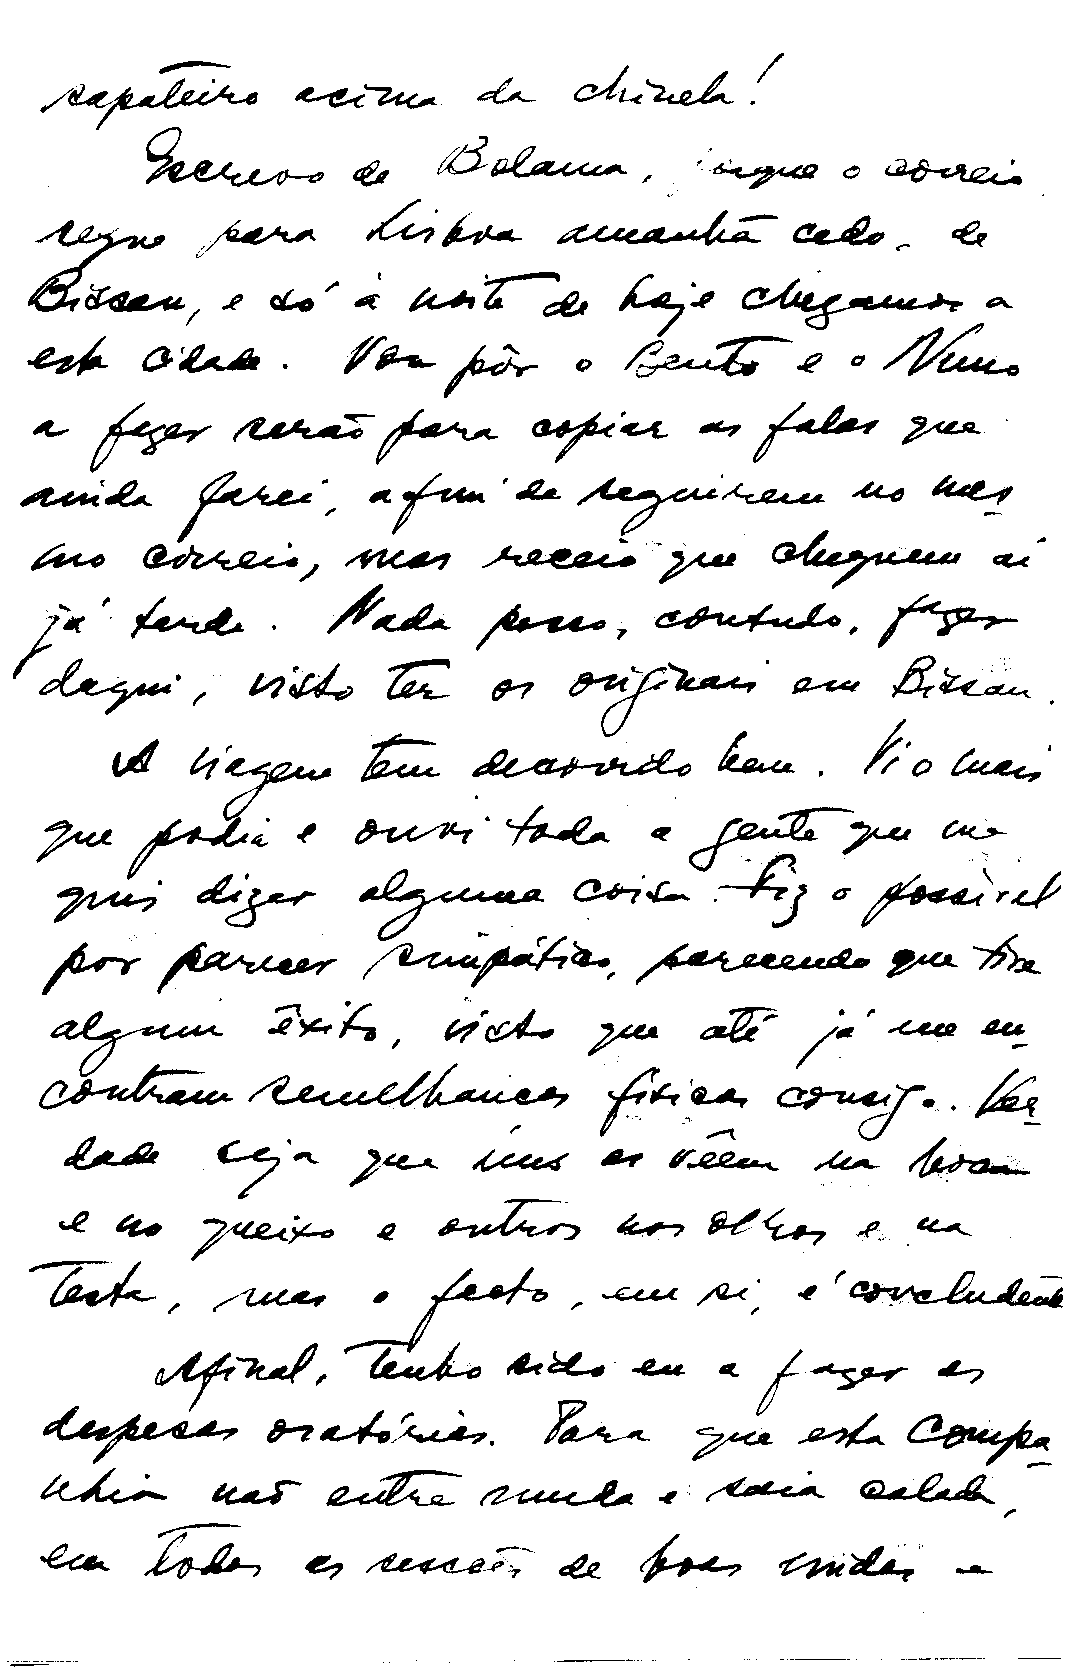 sapateiro acima da chinela!
Escrevo de Bolama, porque o correio
segue para Lisboa amanhã cedo, de
Bissau, e só à noite de hoje chegamos a
esta cidade. Vou pôr o Bento e o Nuno
a fazer serão para copiar as falas que
ainda farei, a fim de seguirem no mes-
mo correio, mas receio que cheguem aí
já tarde. Nada posso, contudo, fazer
daqui, visto ter os originais em Bissau.
A viagem tem decorrido bem. Vi o mais
que podia e ouvi toda a gente que me
quis dizer alguma coisa. Fiz o possível
por parecer simpático, parecendo que tive
algum êxito, visto que até já me en-
contram semelhanças físicas consigo. Ver-
dade seja que uns as vêem na boca
e no queixo e outros nos olhos e na
testa, mas o facto, em si, é concludente
Afinal, tenho sido eu a fazer as
despesas oratórias. Para que esta Compa-
nhia não entre muda e saia calada,
em todas as sessões de boas vindas e